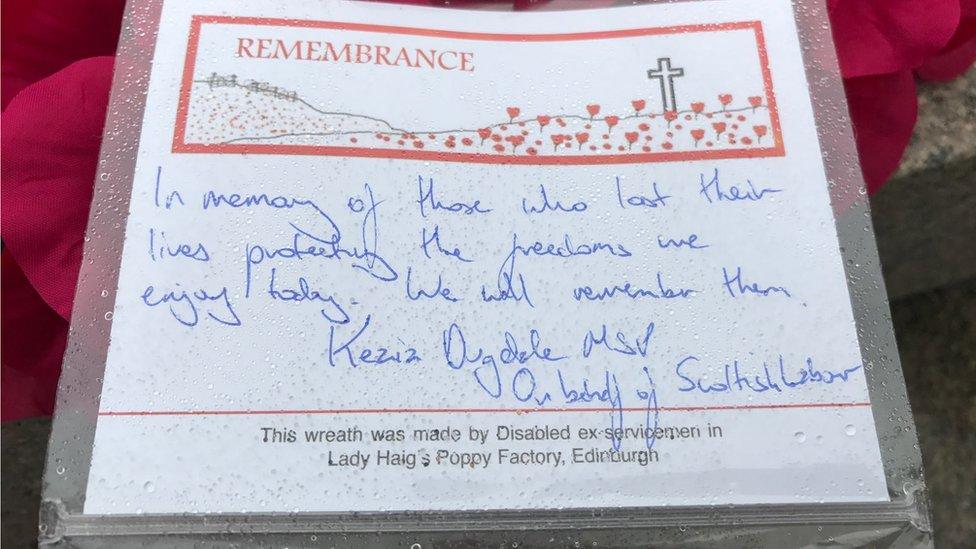 REMEMBRANCE
In memory of those who lost their
lives protecting the freedoms we
enjoy today. We will remember them.
Kezia Dugdale MSP
On behalf of Scottish Labour
This wreath was made by Disabled ex-servicemen in
Lady Haig's Poppy Factory, Edinburgh